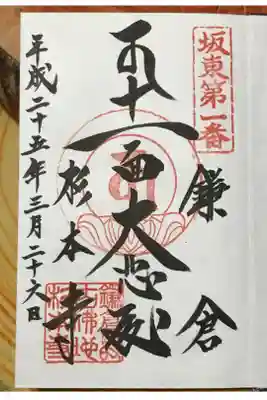 坂東第一番
鎌倉
十一面大悲殿
杉本寺
平成二十五年三月二十六日